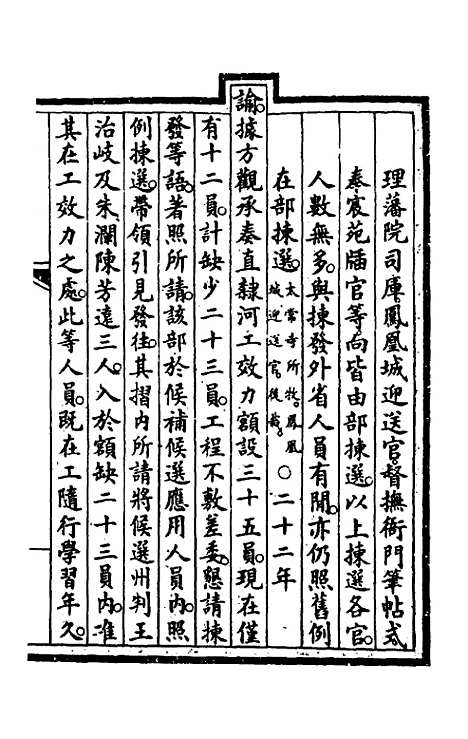 理藩院司庫。鳳凰城迎送官。督撫衙門筆帖式。
奉宸苑牐官等。向皆由部揀選。以上揀選各官。
人數無多。與揀發外省人員有間。亦仍照舊例
在部揀選。太常寺所牧。鳳凰城迎送官。後裁。○二十二年
諭。據方觀承奏直隸河工效力額設三十五員。現在僅
有十二員。計缺少二十三員。工程不敷差委。懇請揀
發等語。著照所請。該部於候補候選應用人員內。照
例揀選。帶領引見發往。其摺內所請將候選州判王
治岐及朱瀾陳芳遠三人。入於額缺二十三員內。准
其在工效力之處。此等人員。既在工隨行學習年久。